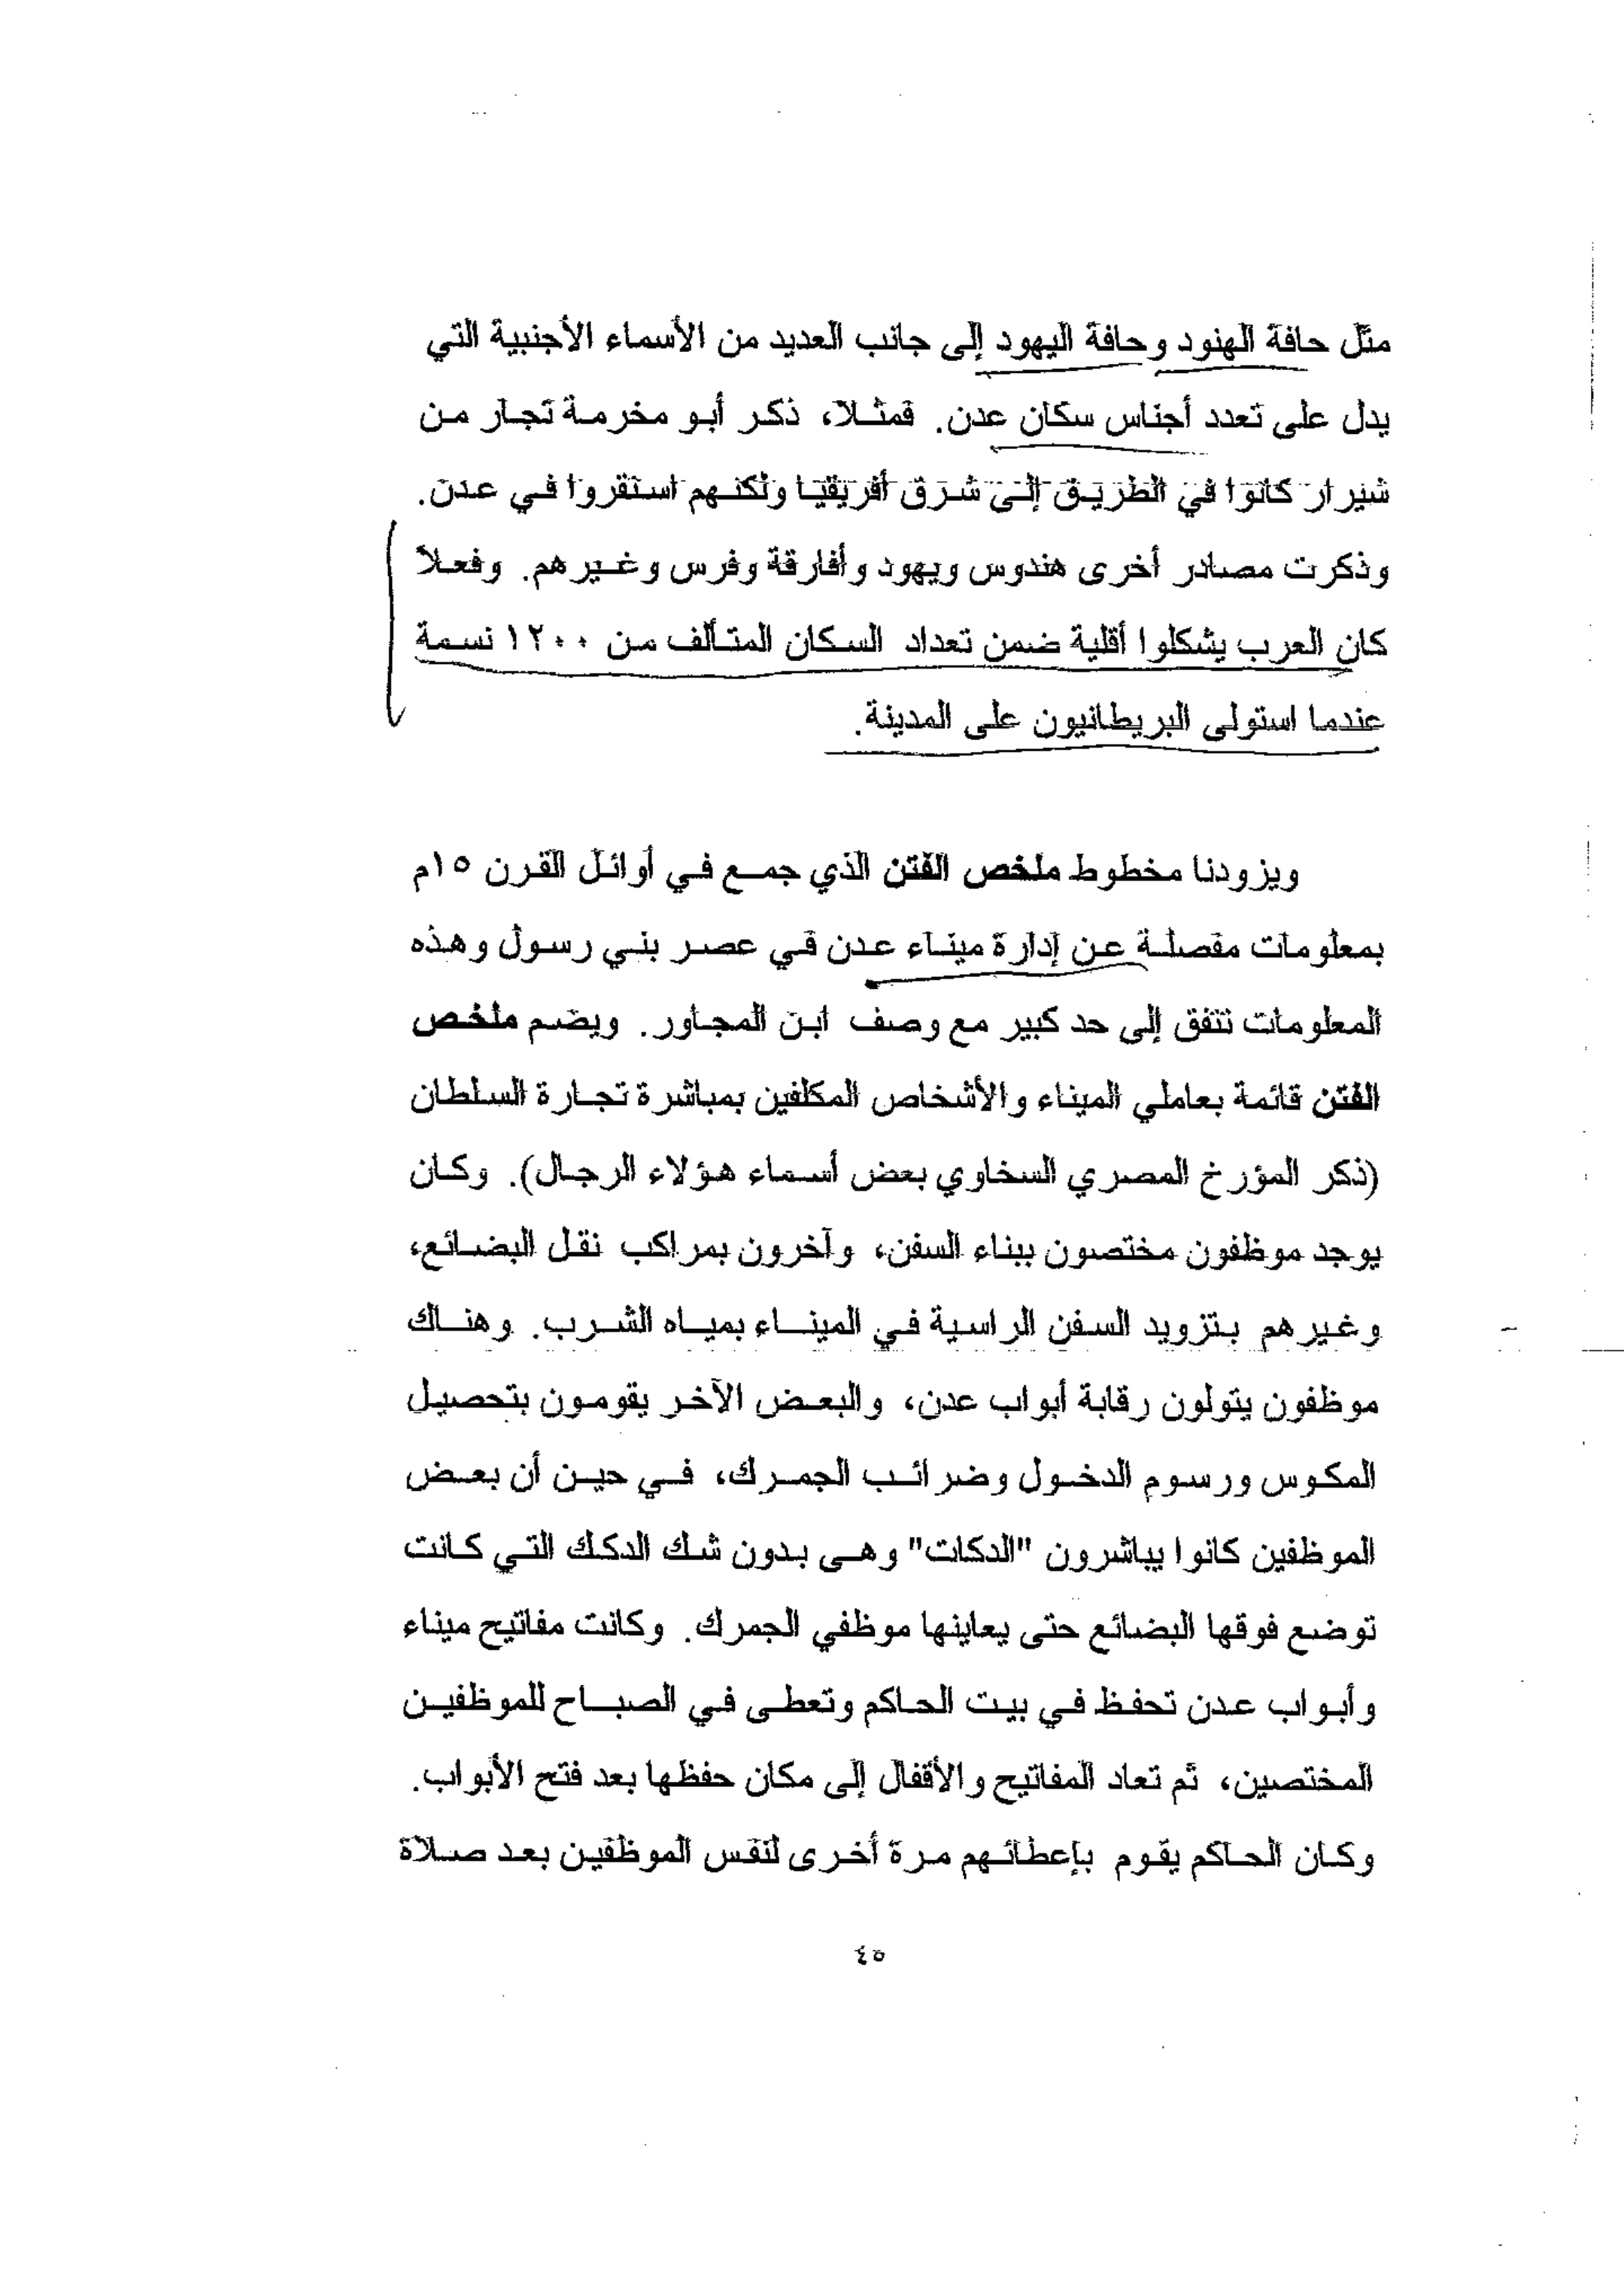 مثل حافة الهنود وحافة اليهود إلى جانب العديد من الأسماء الأجنبية التي
يدل على تعدد أجناس سكان عدن. فمثلا، ذكر أبو مخرمة تجار من
شيراز كانوا في الطريق إلى شرق أفريقيا ولكنهم استقروا في عدن.
وذكرت مصادر أخرى هندوس ويهود وأفارقة وفرس وغيرهم. وفعلاً
كان العرب يشكلوا أقلية ضمن تعداد السكان المتألف من ١٢٠٠ نسمة
عندما استولى البريطانيون على المدينة.
ويزودنا مخطوط ملخص الفتن الذي جمع في أوائل القرن ١٥م
بمعلومات مفصلة عن إدارة ميناء عدن في عصر بني رسول وهذه
المعلومات تتفق إلى حد كبير مع وصف ابن المجاور. ويضم ملخص
الفتن قائمة بعاملي الميناء والأشخاص المكلفين بمباشرة تجارة السلطان
(ذكر المؤرخ المصري السخاوي بعض أسماء هؤلاء الرجال). وكان
يوجد موظفون مختصون ببناء السفن، وآخرون بمراكب نقل البضائع،
وغيرهم بتزويد السفن الراسية في الميناء بمياه الشرب. وهناك
موظفون يتولون رقابة أبواب عدن، والبعض الآخر يقومون بتحصيل
المكوس ورسوم الدخول وضرائب الجمرك، في حين أن بعض
الموظفين كانوا يباشرون "الدكات" وهى بدون شك الدكك التي كانت
توضع فوقها البضائع حتى يعاينها موظفي الجمرك. وكانت مفاتيح ميناء
وأبواب عدن تحفظ في بيت الحاكم وتعطى في الصباح للموظفين
المختصين، ثم تعاد المفاتيح والأقفال إلى مكان حفظها بعد فتح الأبواب.
وكان الحاكم يقوم بإعطائهم مرة أخرى لنفس الموظفين بعد صلاة
٤٥